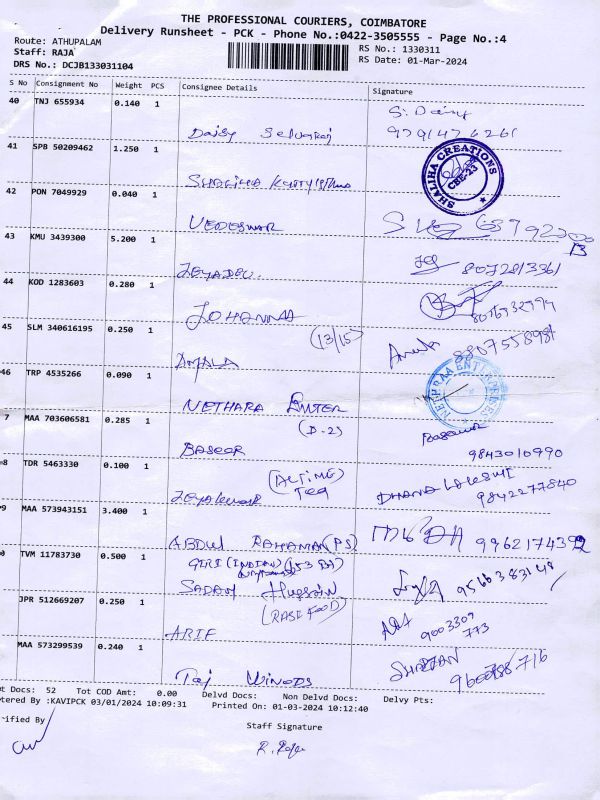 THE PROFESSIONAL COURIERS, COIMBATORE
Delivery Runsheet - PCK - Phone No.:0422-3505555 - Page No.:4
Route: ATHUPALAM
RS No.: 1330311
Staff: RAJA
RS Date: 01-Mar-2024
DRS No.: DCJB133031104
S No Consignment No Weight PCS Consignee Details Signature
40 TNJ 655934 0.140 1
S. Daisy
Daisy Selvaraj 9791476261
41 SPB 50209462 1.250 1
SHALIHA CREATIONS
CBE-23
42 PON 7049929 0.040 1
VEDESWAR
43 KMU 3439300 5.200 1
JEYADEV. 8072813361
44 KOD 1283603 0.280 1
JOHANNA
(13/15)
45 SLM 340616195 0.250 1
AMALA 8807558981
46 TRP 4535266 0.090 1
NETHRAA ENTERPRISES
NETHARA ENTER
(D-2)
7 MAA 703606581 0.285 1
BASEER 9843010990
8 TDR 5463330 0.100 1
(ACTIMG)
Teq
Jeyakumar DHANA LAKSHMI
9842277840
9 MAA 573943151 3.400 1
ABDUL RAHAMAN (PS) 9962174392
0 TVM 11783730 0.500 1
GIRI (INDIAN)
SADAM Hussain 9566383148
JPR 512669207 0.250 1
(RASI FOOD)
ARIF 9003309
773
MAA 573299539 0.240 1
Taj WINODS
t Docs: 52 Tot COD Amt: 0.00 Delvd Docs: Non Delvd Docs: Delvy Pts:
tered By :KAVIPCK 03/01/2024 10:09:31 Printed On: 01-03-2024 10:12:40
rified By
Staff Signature